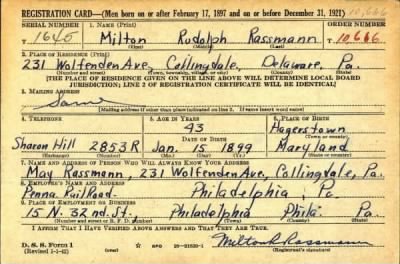 REGISTRATION CARD—(Men born on or after February 17, 1897 and on or before December 31, 1921)
SERIAL NUMBER 1. NAME (Print) ORDER NUMBER
T 1645 Milton Rudolph Rassmann T 10,666
(First) (Middle) (Last)
2. PLACE OF RESIDENCE (Print)
231 Wolfenden Ave, Collingdale, Delaware, Pa.
(Number and street) (Town, township, village, or city) (County) (State)
[THE PLACE OF RESIDENCE GIVEN ON THE LINE ABOVE WILL DETERMINE LOCAL BOARD
JURISDICTION; LINE 2 OF REGISTRATION CERTIFICATE WILL BE IDENTICAL]
3. MAILING ADDRESS
Same
[Mailing address if other than place indicated on line 2. If same insert word same]
4. TELEPHONE 5. AGE IN YEARS 6. PLACE OF BIRTH
43 Hagerstown
DATE OF BIRTH (Town or county)
Sharon Hill 2853R Jan. 15 1899 Maryland
(Exchange) (Number) (Mo.) (Day) (Yr.) (State or country)
7. NAME AND ADDRESS OF PERSON WHO WILL ALWAYS KNOW YOUR ADDRESS
May Rassmann, 231 Wolfenden Ave, Collingdale, Pa.
8. EMPLOYER'S NAME AND ADDRESS
Penna. Rail Road. Philadelphia, Pa.
9. PLACE OF EMPLOYMENT OR BUSINESS
15 N. 32nd. St., Philadelphia Phila. Pa.
(Number and street or R. F. D. number) (Town) (County) (State)
I AFFIRM THAT I HAVE VERIFIED ABOVE ANSWERS AND THAT THEY ARE TRUE.
D. S. S. Form 1
(Revised 1-1-42) GPO 16—21630-1 Milton R Rassmann